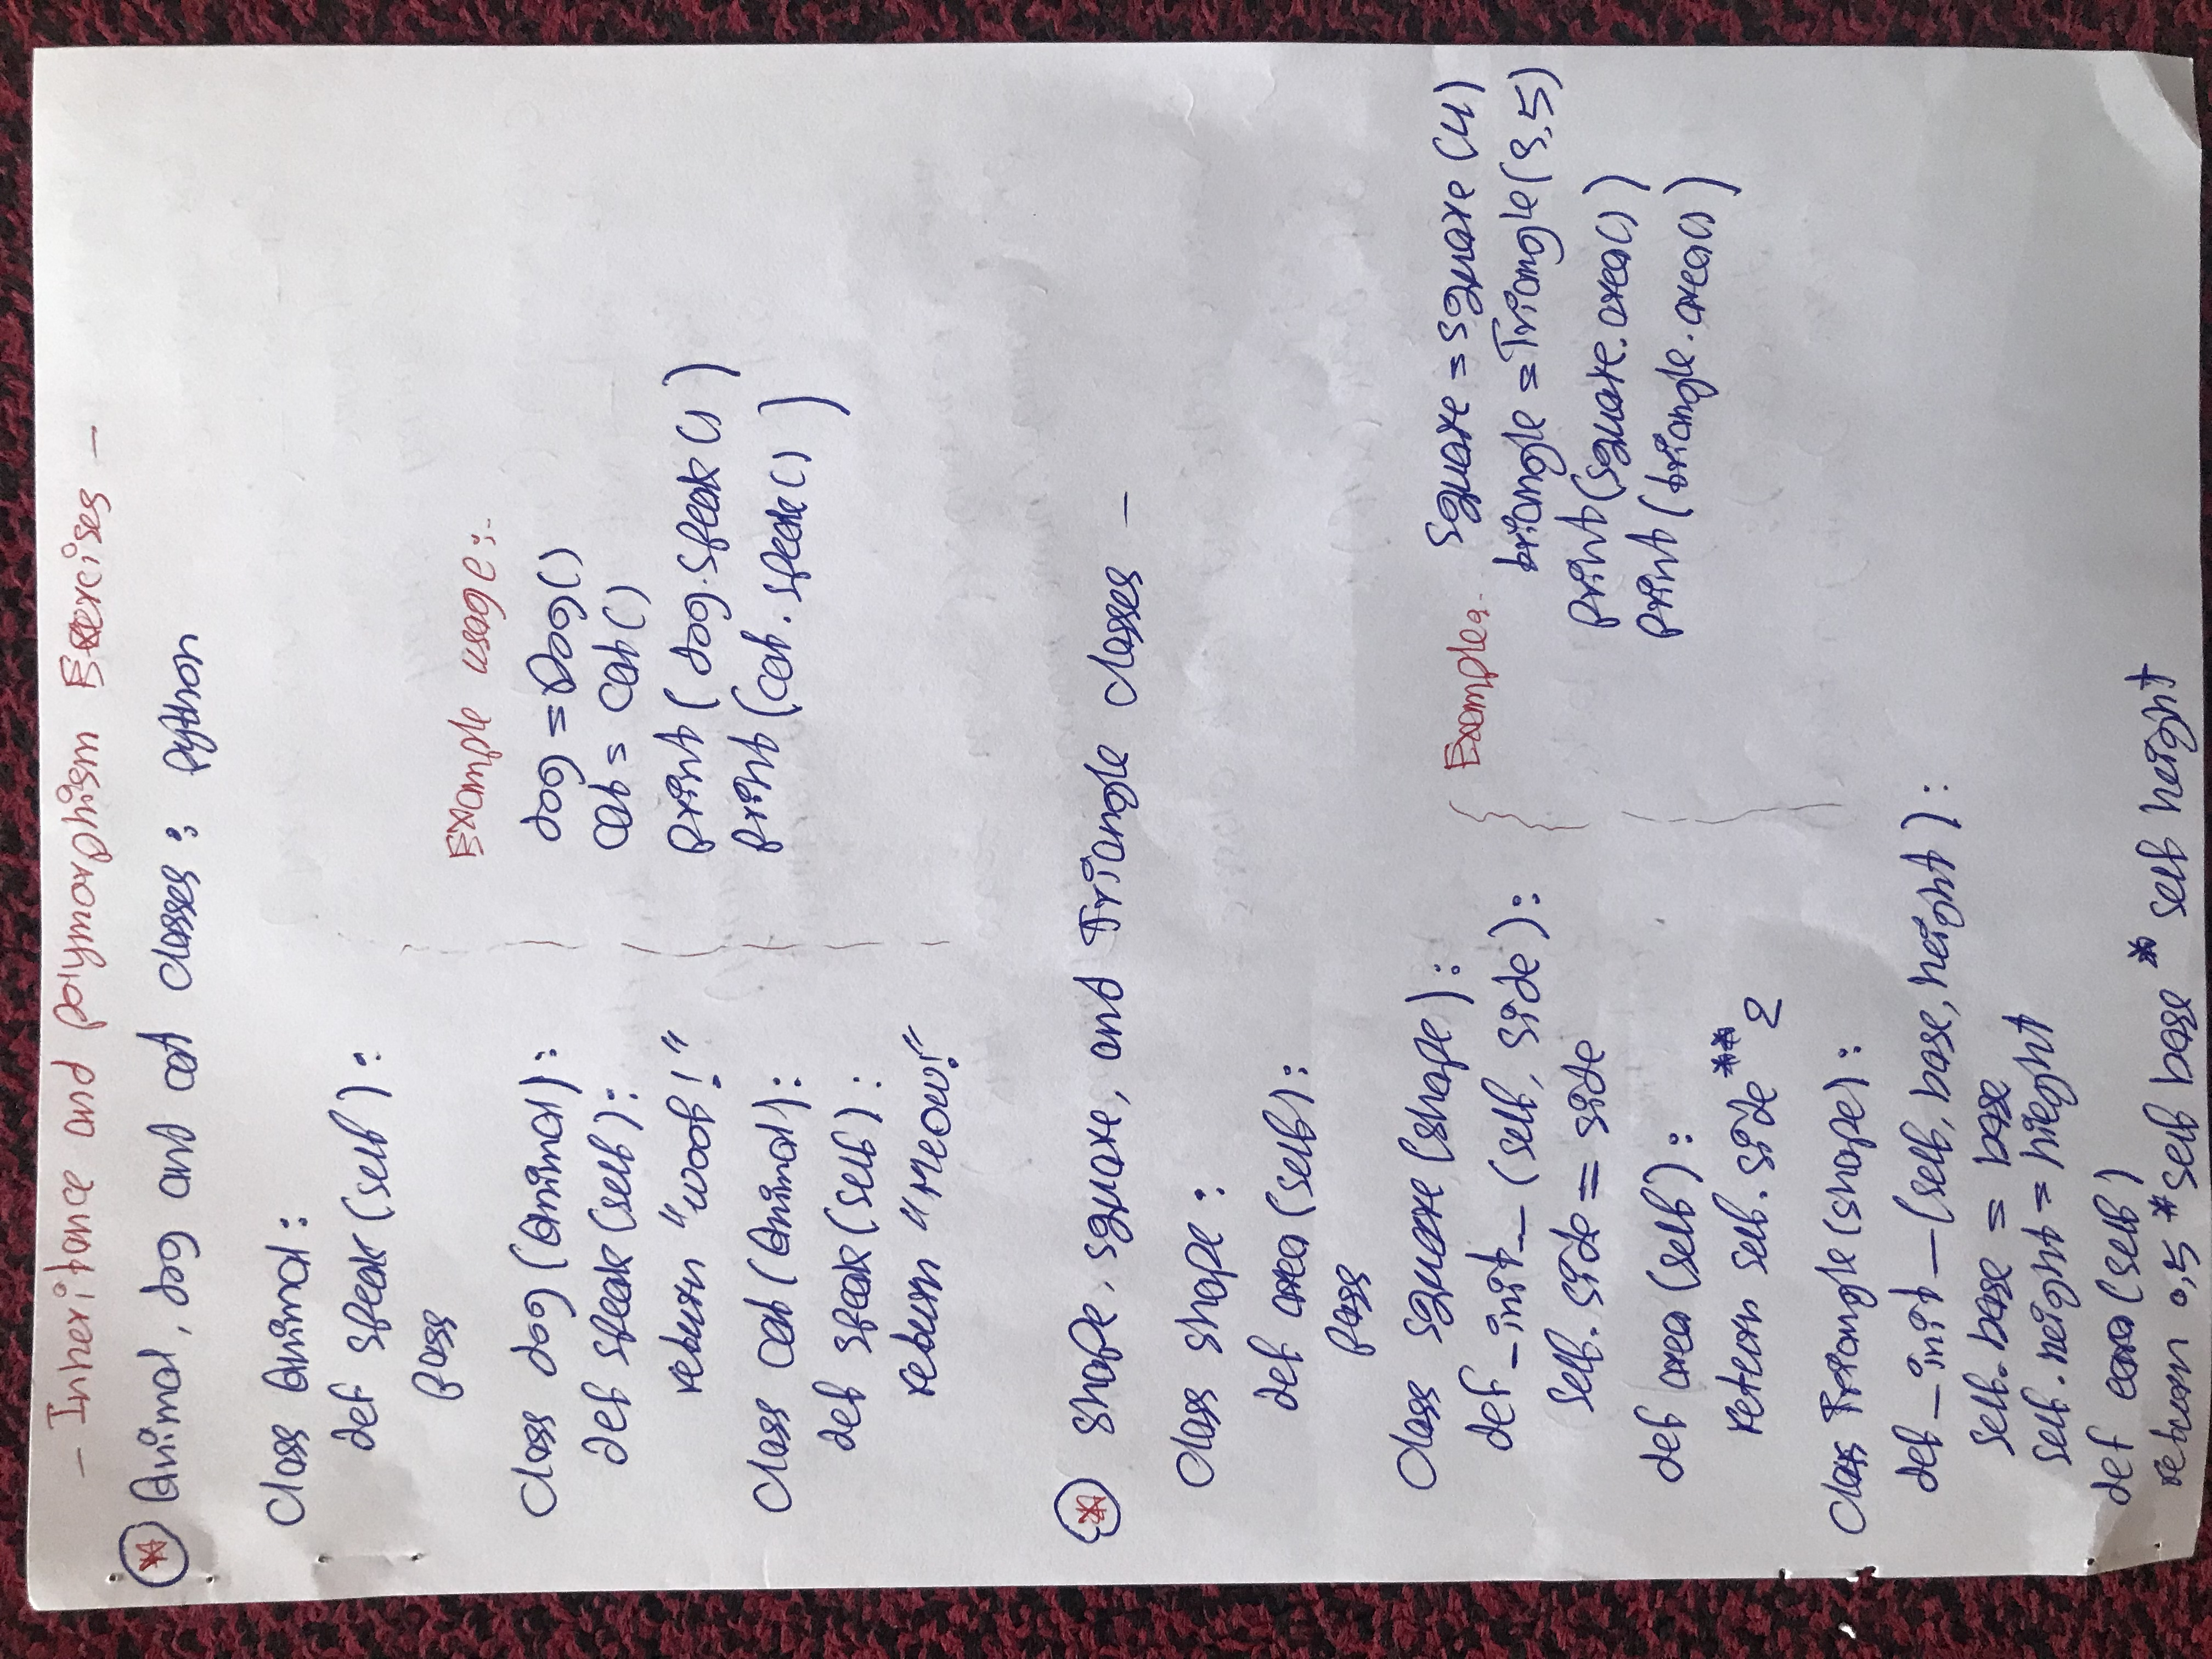 - Inheritance and polymorphism Exercises -
Animal, dog and cat classes : python
Class Animal :
def speak (self) :
pass
Class dog (Animal) :
def speak (self) :
return "woof! "
Class cat (Animal) :
def speak (self) :
return "Meow!"
Example usage :-
dog = Dog()
cat = cat()
print( dog.speak() )
print(cat.speak() )
shape, square, and Triangle classes -
Class shape :
def area (self) :
pass
Class square (shape) :
def _init_ (self, side) :
self.side = side
def area (self) :
return self.side**2
Class Triangle (shape) :
def _init_ (self, base, height) :
self.base = base
self.height = hieght
def (self)
return 0,5 * self base * self height
Example:-
square = square (4)
triangle = Triangle (3,5)
print(square.area() )
print(triangle.area() )